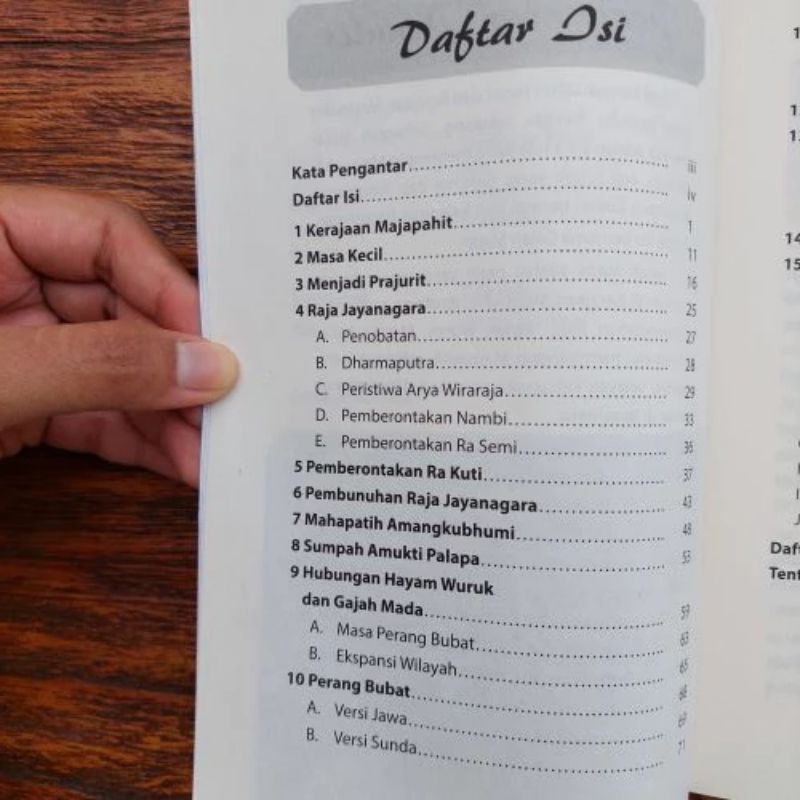 Daftar Isi
Kata Pengantar........................................ iii
Daftar Isi........................................ iv
1 Kerajaan Majapahit........................................ 1
2 Masa Kecil........................................ 11
3 Menjadi Prajurit........................................ 16
4 Raja Jayanagara........................................ 25
A. Penobatan........................................ 27
B. Dharmaputra........................................ 28
C. Peristiwa Arya Wiraraja........................................ 29
D. Pemberontakan Nambi........................................ 33
E. Pemberontakan Ra Semi........................................ 36
5 Pemberontakan Ra Kuti........................................ 37
6 Pembunuhan Raja Jayanagara........................................ 43
7 Mahapatih Amangkubhumi........................................ 48
8 Sumpah Amukti Palapa........................................ 53
9 Hubungan Hayam Wuruk
dan Gajah Mada........................................ 59
A. Masa Perang Bubat........................................ 63
B. Ekspansi Wilayah........................................ 65
10 Perang Bubat........................................ 68
A. Versi Jawa........................................ 69
B. Versi Sunda........................................ 71
14
15